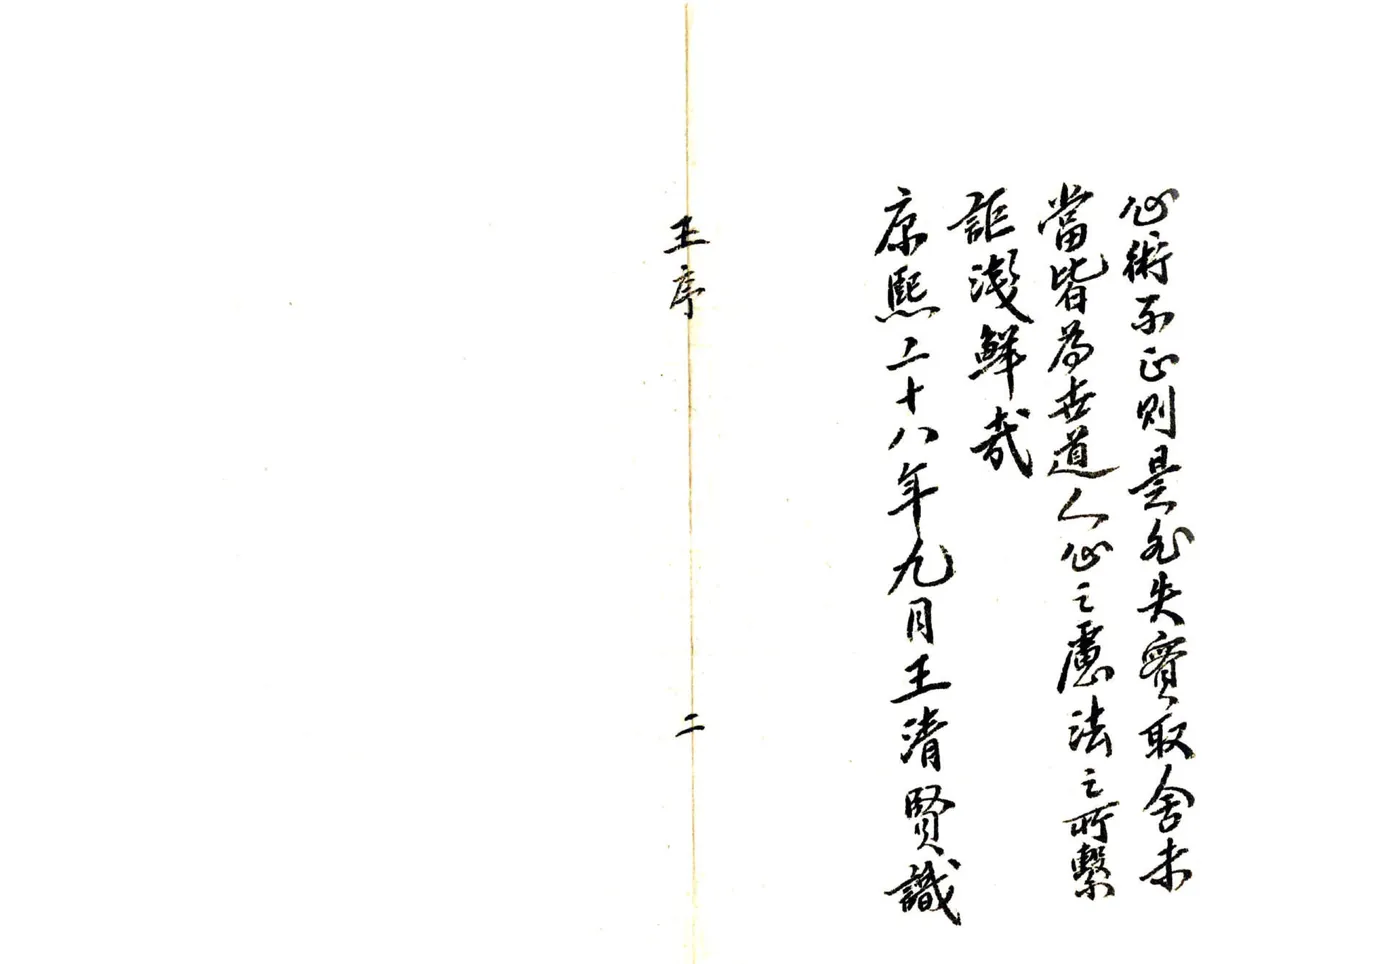 心術不正則是非失實取舍未
當皆為世道人心之慮法之所繫
詎淺鮮哉
康熙二十八年九月王清賢識
王序
二